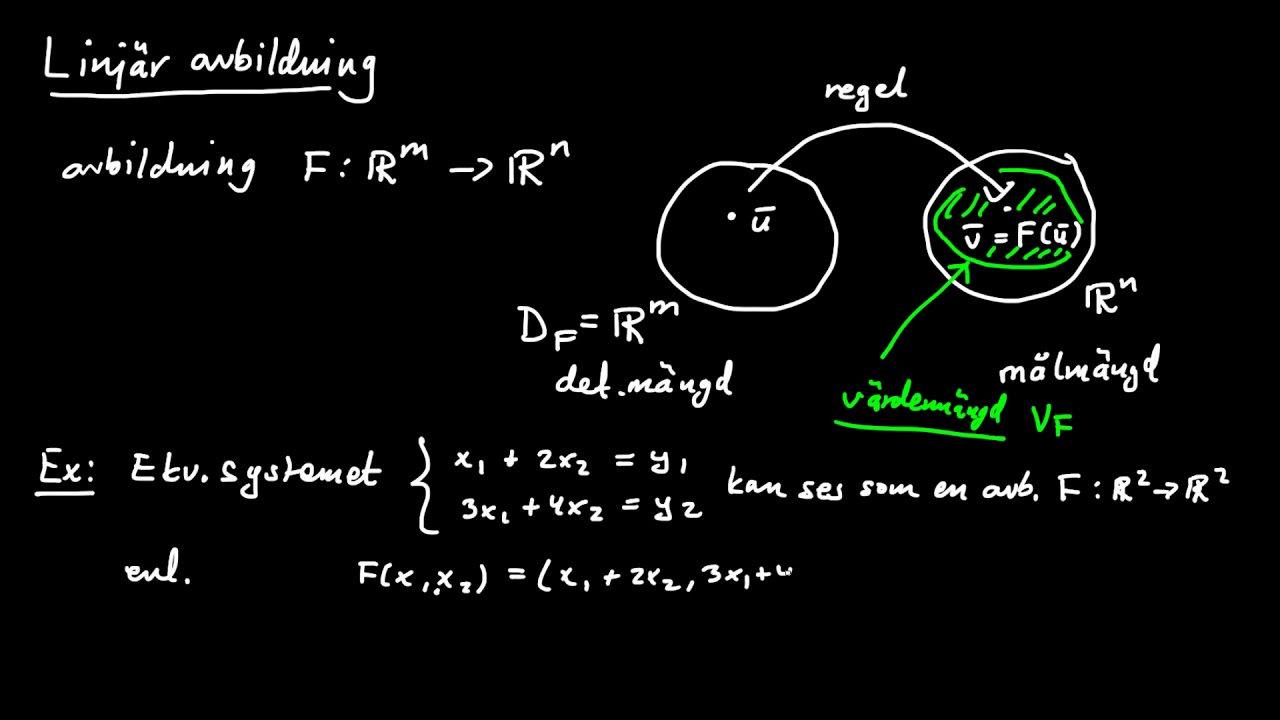 Linjär avbildning
regel
avbildning F : ℝᵐ → ℝⁿ
ū
v̄ = F(ū)
ℝⁿ
D_F = ℝᵐ
def.mängd
målmängd
värdemängd V_F
Ex: Ekv.systemet { x₁ + 2x₂ = y₁
3x₁ + 4x₂ = y₂
kan ses som en avb. F : ℝ² → ℝ²
enl. F(x₁,x₂) = (x₁ + 2x₂, 3x₁+